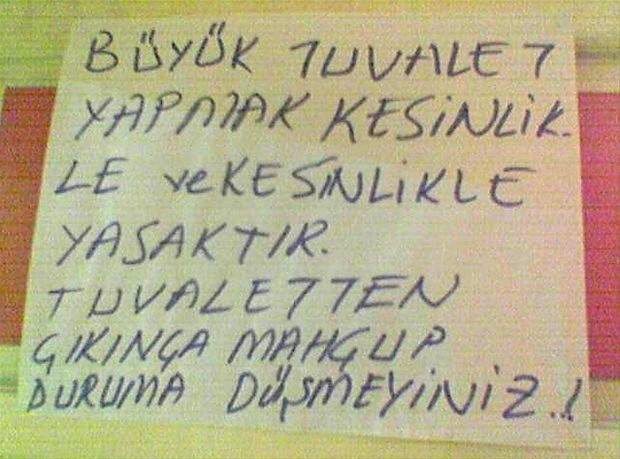 BÜYÜK TUVALET
YAPMAK KESİNLİK.
LE ve KESİNLİKLE
YASAKTIR.
TUVALETTEN
ÇIKINÇA MAHÇUP
DURUMA DÜŞMEYİNİZ..!